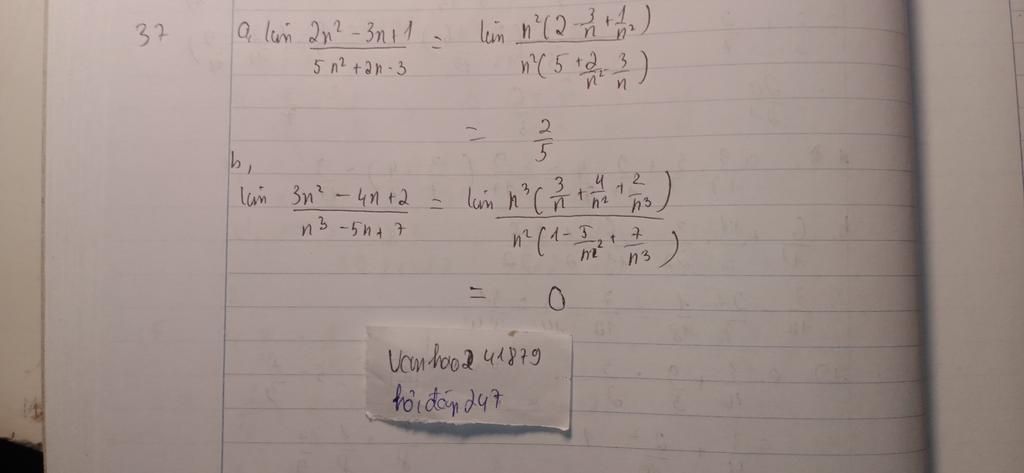 37 a, lim (2n² - 3n + 1)/(5n² + 2n - 3) = lim n²(2 - 3/n + 1/n²)/n²(5 + 2/n² - 3/n)
= 2/5
b,
lim (3n² - 4n + 2)/(n³ - 5n + 7) = lim n³(3/n + 4/n² + 2/n³)/n²(1 - 5/n² + 7/n³)
= 0
Vanhao241879
hỏi đáp 247